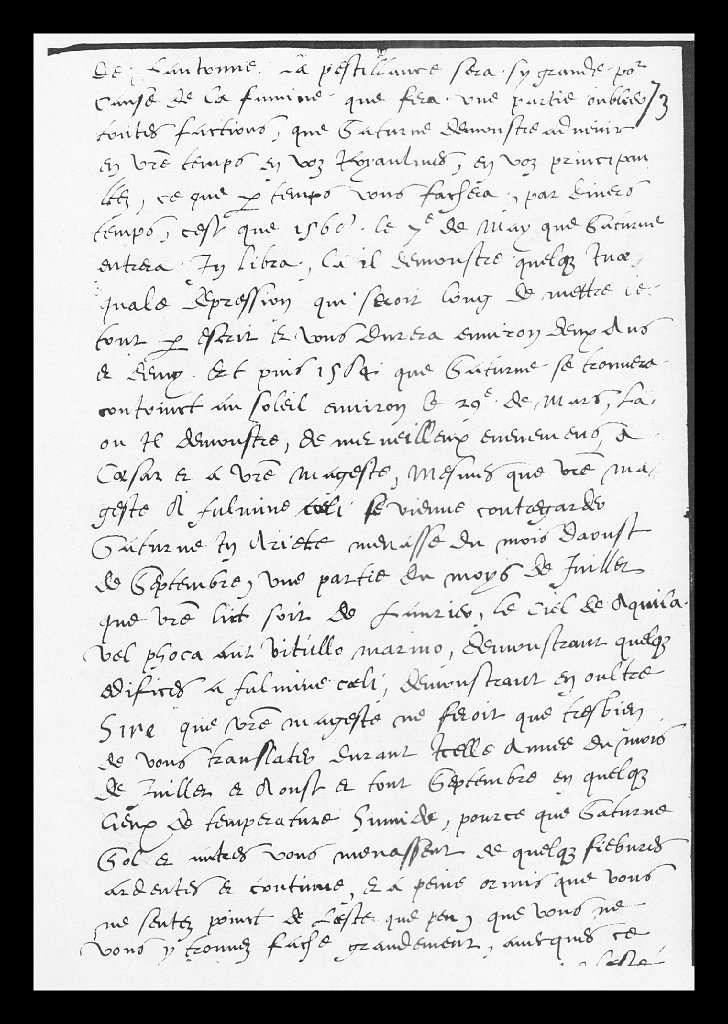 de Lautonne. La pestillance sera sy grande po^r
Cause de la famine que fera une partie oublier
toutes factions, que Saturne demonstre advenir 73
en vre temps en voz Royaulmes, en voz principau
ltez, ce que p temps vous fachera, par divers
temps, cest que 1560 le 7^e de May que Saturne
entrera In libra, la il demonstre quelq Inæ-
quale depression qui seroit long de mettre le
tout p escrit et vous durera environ deux Ans
et demy. Et puis 1564 que Saturne se trouvera
conioinct au soleil environ le 29^e de Mars, La
ou Il demonstre, de merveilleux evenemens, a
Cæsar et a vre mageste, Mesmes que vre ma-
geste A fulmine cœli se vienne contregarder
Saturne In Ariete menasse du mois daoust
de Septembre, une partie du moys de Juillet
que vre lict soit de Laurier, le ciel de Aquila
vel phoca aut vitullo marino, demonstrant quelq
edifices a fulmine cœli, demonstrant en oultre
Sire que vre mageste ne feroit que tresbien
de vous translater durant Icelle Annee du mois
de Juillet et Aoust et tout Septembre en quelq
lieux de temperature humide, pource que Saturne
Sol et autres vous menassent de quelq fiebvres
ardentes et continue, et a peine ormis que vous
ne sentez poinct de Leste que peu, que vous ne
vous y trouvez fache grandement, avecques ce